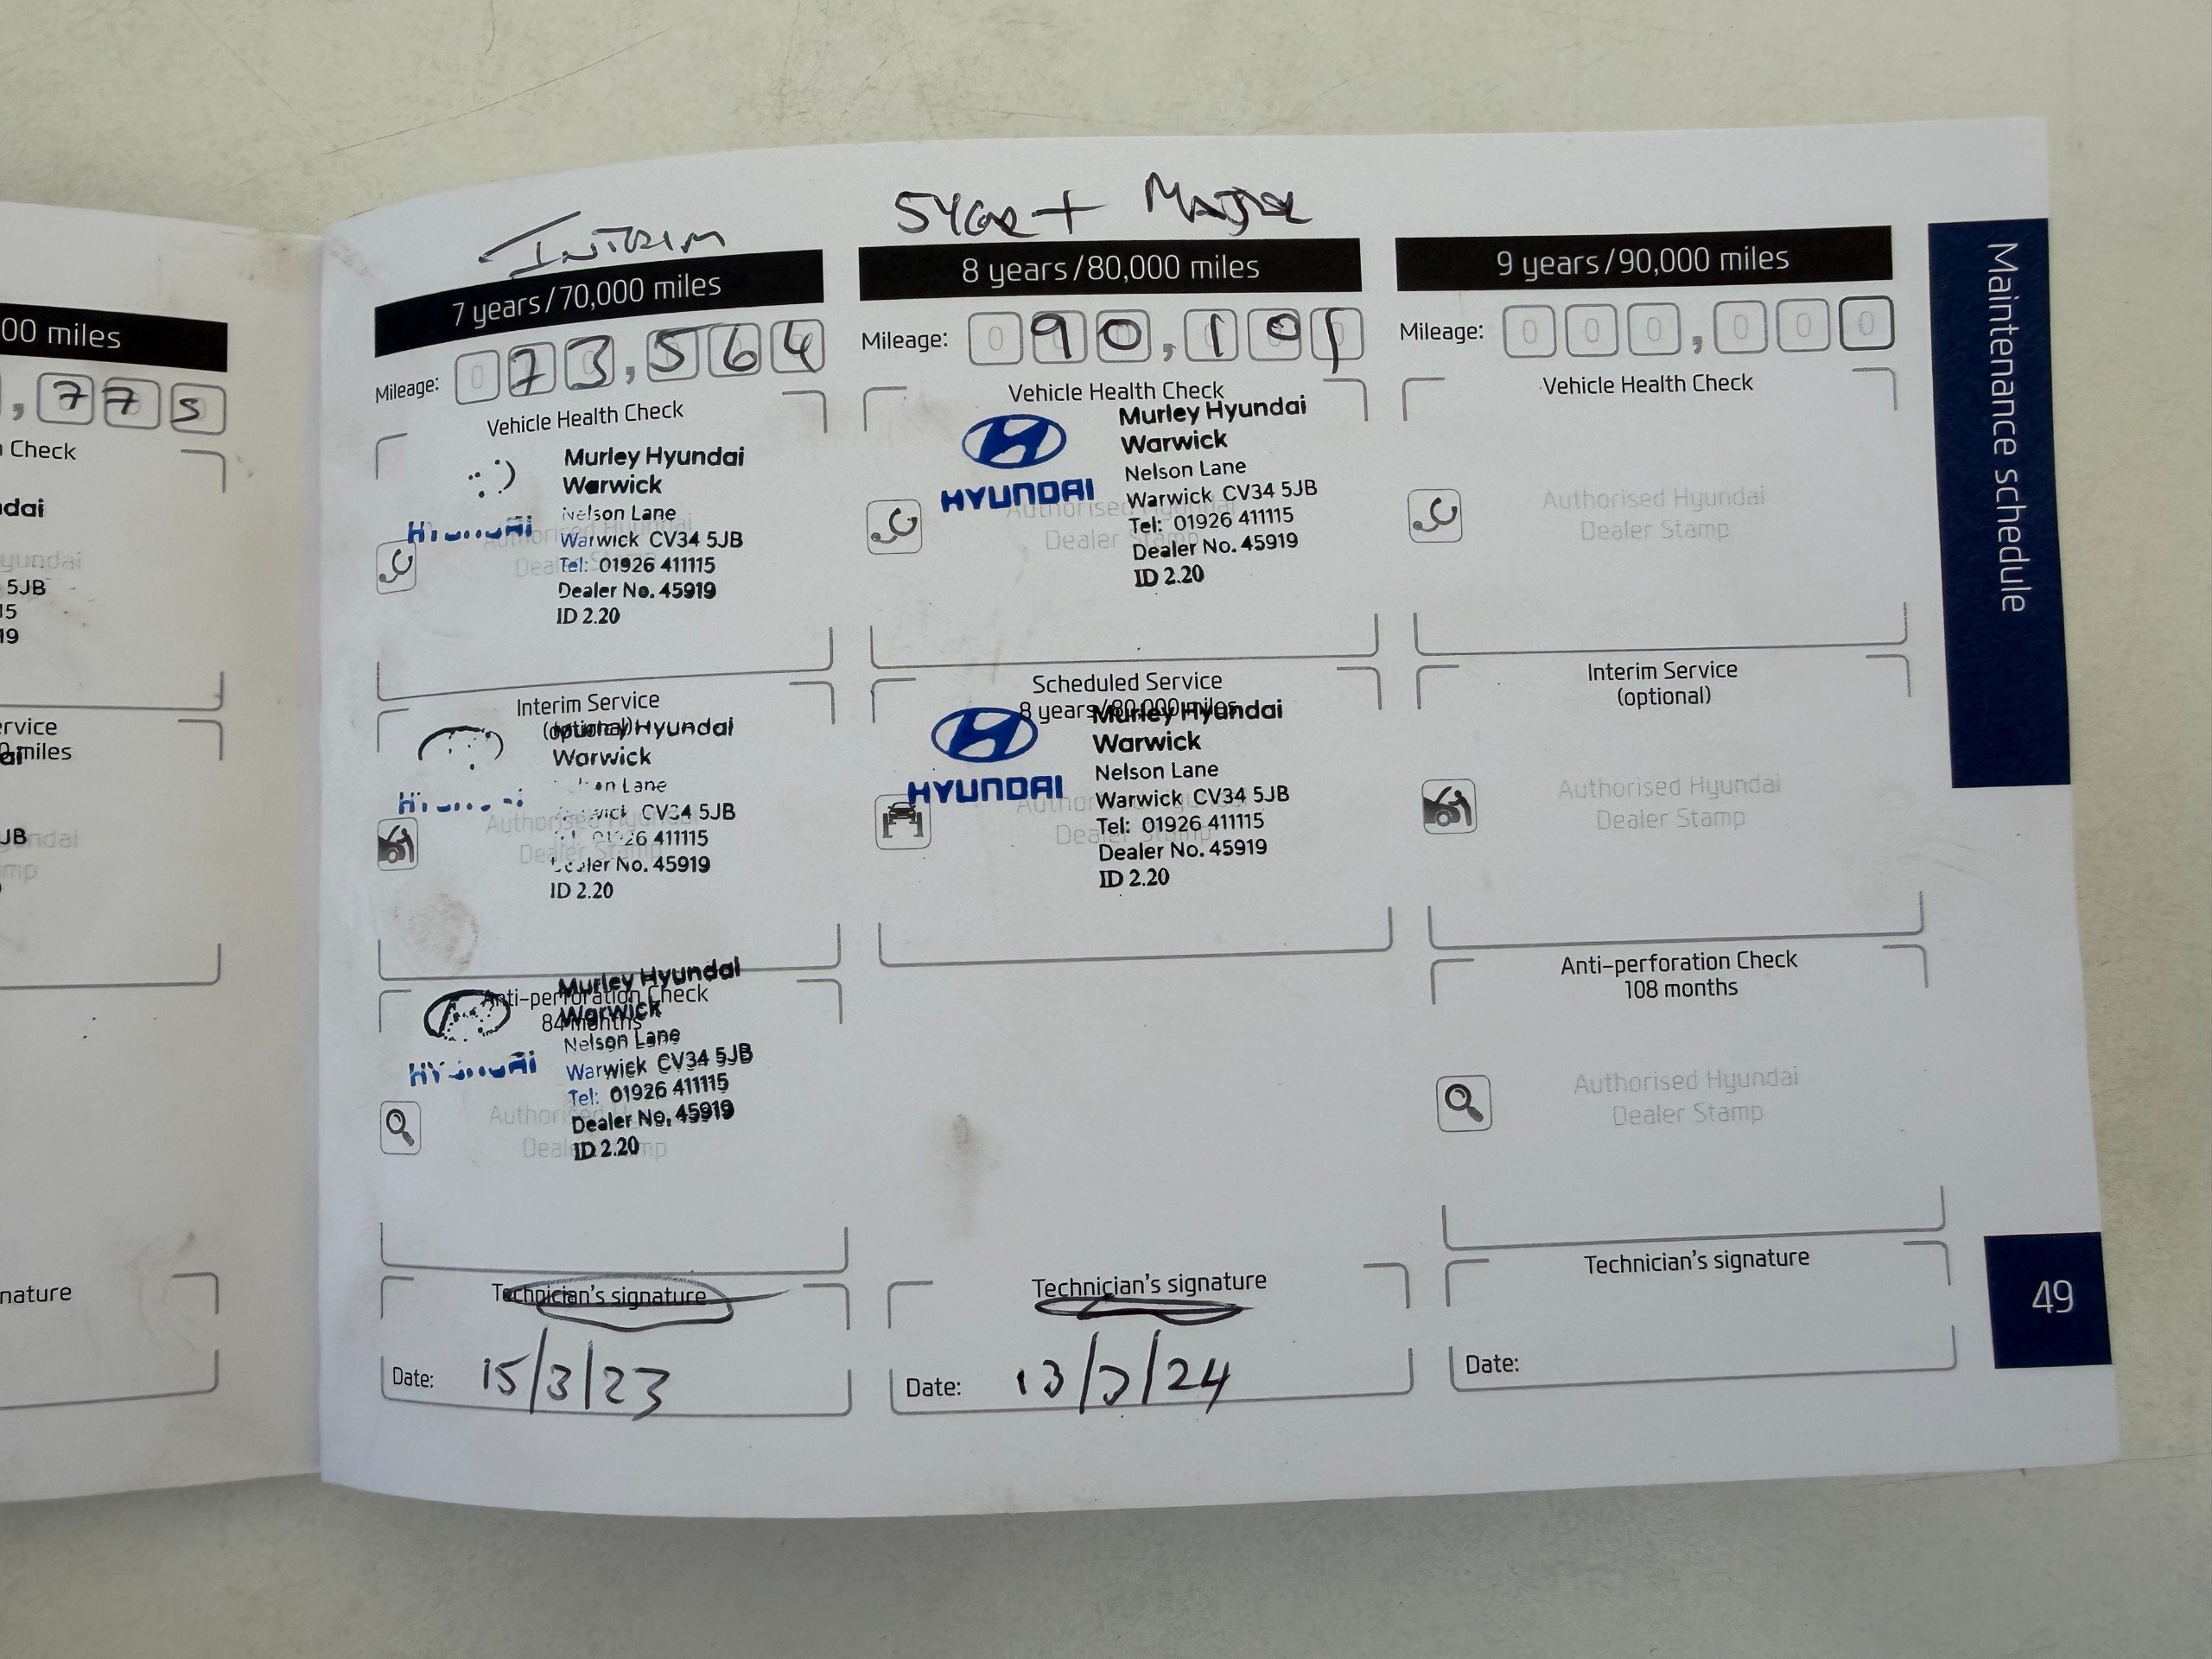 00 miles
, 7 7 5
Check
dai
yundai
5JB
15
19
ervice
0 miles
ai
JB
ndai
mp
nature
INTERIM
7 years/70,000 miles
Mileage: 0 7 3 , 5 6 4
Vehicle Health Check
Murley Hyundai
Warwick
Nelson Lane
Warwick CV34 5JB
Tel: 01926 411115
Dealer No. 45919
ID 2.20
HYUNDAI
Authorised Hyundai
Dealer Stamp
Interim Service
(optional)
Murley Hyundai
Warwick
Nelson Lane
Warwick CV34 5JB
Tel: 01926 411115
Dealer No. 45919
ID 2.20
HYUNDAI
Authorised Hyundai
Dealer Stamp
Anti-perforation Check
84 months
Murley Hyundai
Warwick
Nelson Lane
Warwick CV34 5JB
Tel: 01926 411115
Dealer No. 45919
ID 2.20
HYUNDAI
Authorised Hyundai
Dealer Stamp
Technician's signature
Date: 15/3/23
5 YEAR + MAJOR
8 years/80,000 miles
Mileage: 0 9 0 , 1 0 1
Vehicle Health Check
HYUNDAI
Murley Hyundai
Warwick
Nelson Lane
Warwick CV34 5JB
Tel: 01926 411115
Dealer No. 45919
ID 2.20
Authorised Hyundai
Dealer Stamp
Scheduled Service
8 years/80,000 miles
HYUNDAI
Murley Hyundai
Warwick
Nelson Lane
Warwick CV34 5JB
Tel: 01926 411115
Dealer No. 45919
ID 2.20
Authorised Hyundai
Dealer Stamp
Technician's signature
Date: 13/3/24
9 years/90,000 miles
Mileage: 0 0 0 , 0 0 0
Vehicle Health Check
Authorised Hyundai
Dealer Stamp
Interim Service
(optional)
Authorised Hyundai
Dealer Stamp
Anti-perforation Check
108 months
Authorised Hyundai
Dealer Stamp
Technician's signature
Date:
Maintenance schedule
49